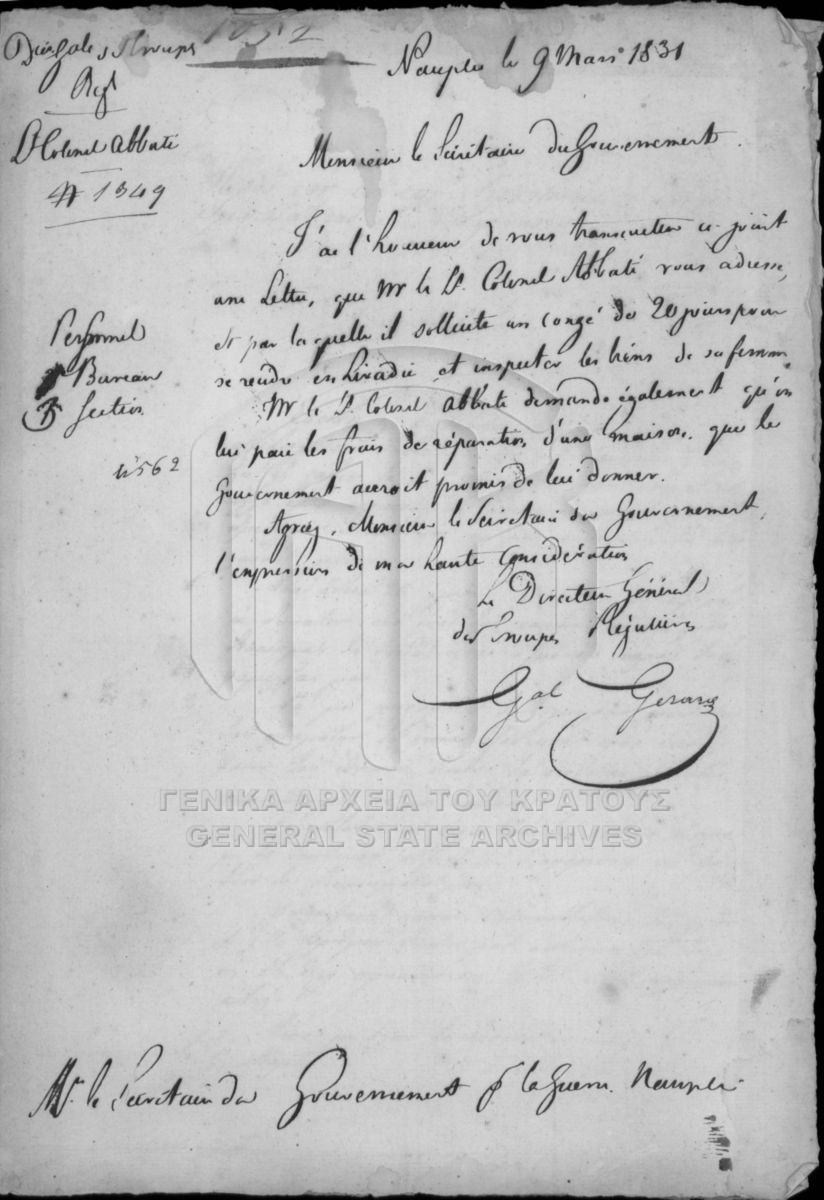 1052
Dion Gale des Troupes
Regl
Nauplie le 9 Mars 1831
Lt Colonel Abbati
# 1349
Monsieur le Secrétaire du Gouvernement.
J'ai l'honneur de vous transmettre ci joint
une Lettre, que Mr le Lt. Colonel Abbaté vous adresse,
et par laquelle il sollicite un congé de 20 jours pour
se rendre en Livadie et inspecter les biens de sa femme
Mr le Lt Colonel Abbate demande également qu'on
lui paie les frais de réparation d'une maison, que le
Gouvernement auroit promis de lui donner.
Agréez, Monsieur le Secretaire du Gouvernement,
l'expression de ma haute Considération
Le Directeur Général
des Troupes Régulières
Gal Gerard
Personnel
Bureau
Section
N 562
ΓΕΝΙΚΑ ΑΡΧΕΙΑ ΤΟΥ ΚΡΑΤΟΥΣ
GENERAL STATE ARCHIVES
Mr. le Secrétaire du Gouvernement pr la Guerre Nauplie